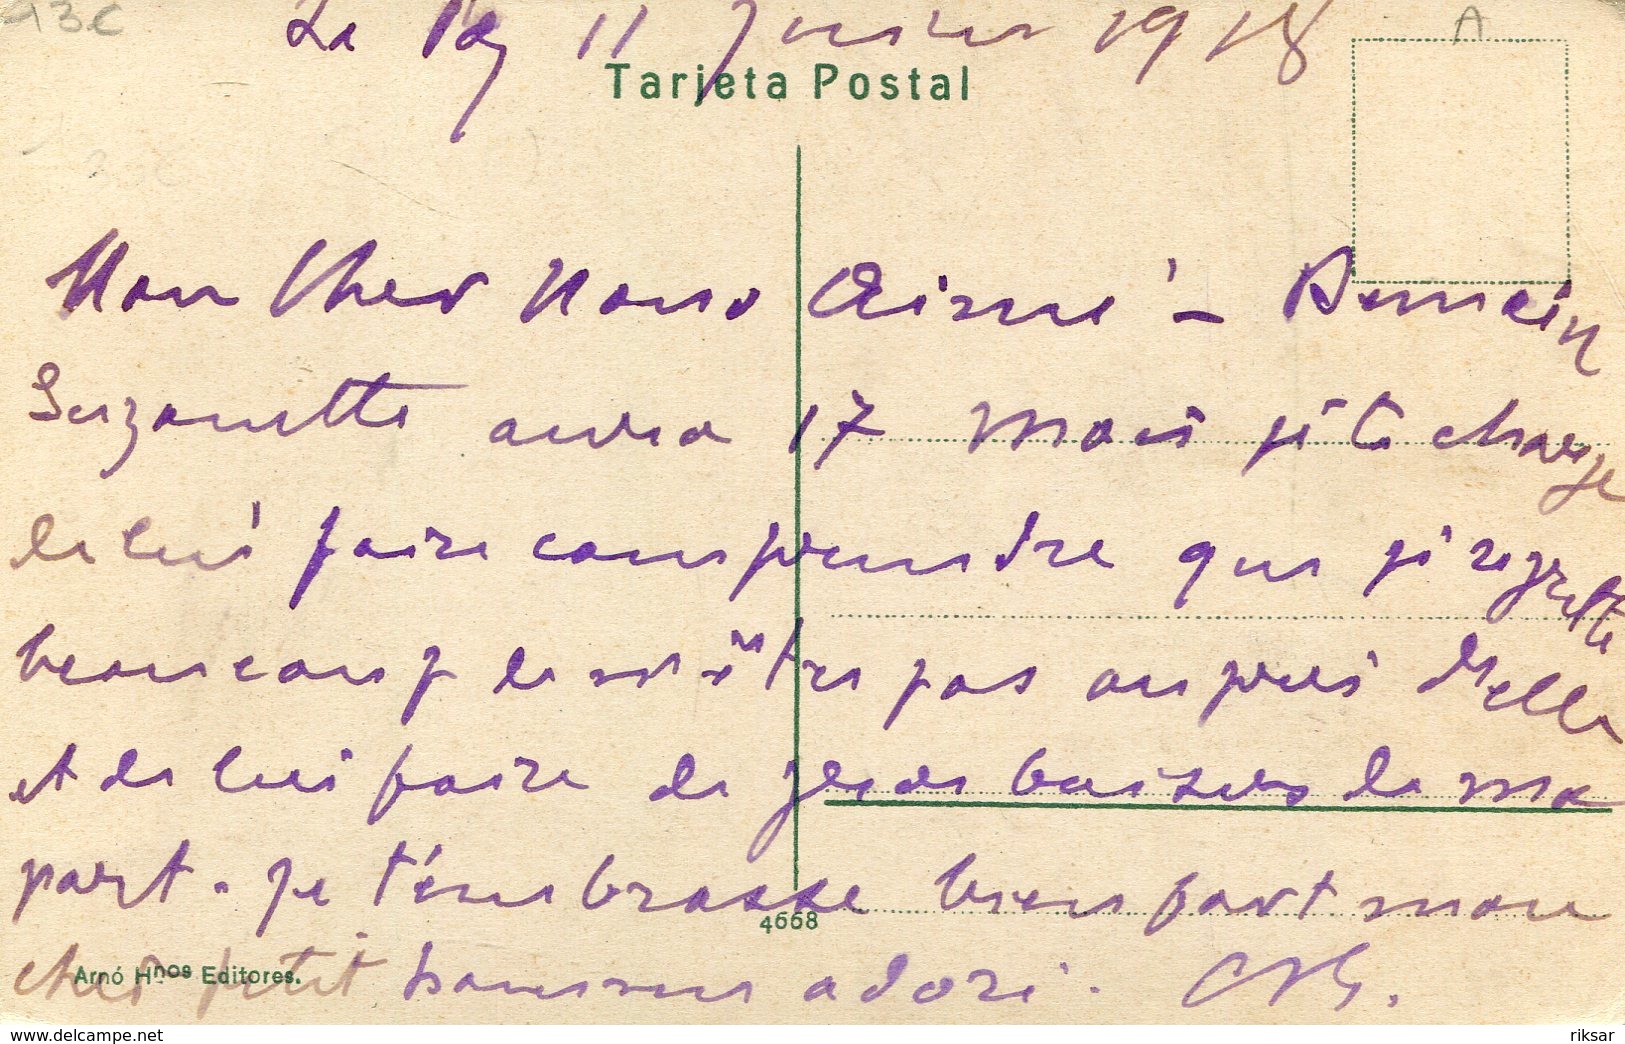 93c
La Paz 11 Janvier 1918
A
Tarjeta Postal
Mon Cher Nono Aimé - Demain
Suzonette aura 17 Mois je te charge
de lui faire comprendre que je regrette
beaucoup de n'être pas auprès d'elle
et de lui faire de gros baisers de ma
part. je t'embrasse bien fort mon
cher petit homme adoré.
4668
Arnó Hnos Editores.
delcampe.net
riksar